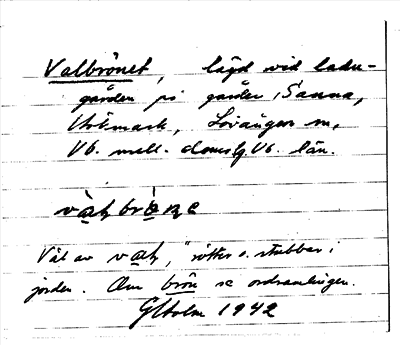 Valbrönet, lägd vid ladu-
gården på gården Sanna,
Uttmark, Lövångers sn,
Vb. mell. domsg. Vb. län.
Väl av vaḷ, "rötter o. stubbar i
jorden. Om brön se ordsamlingen.
GHolm 1942